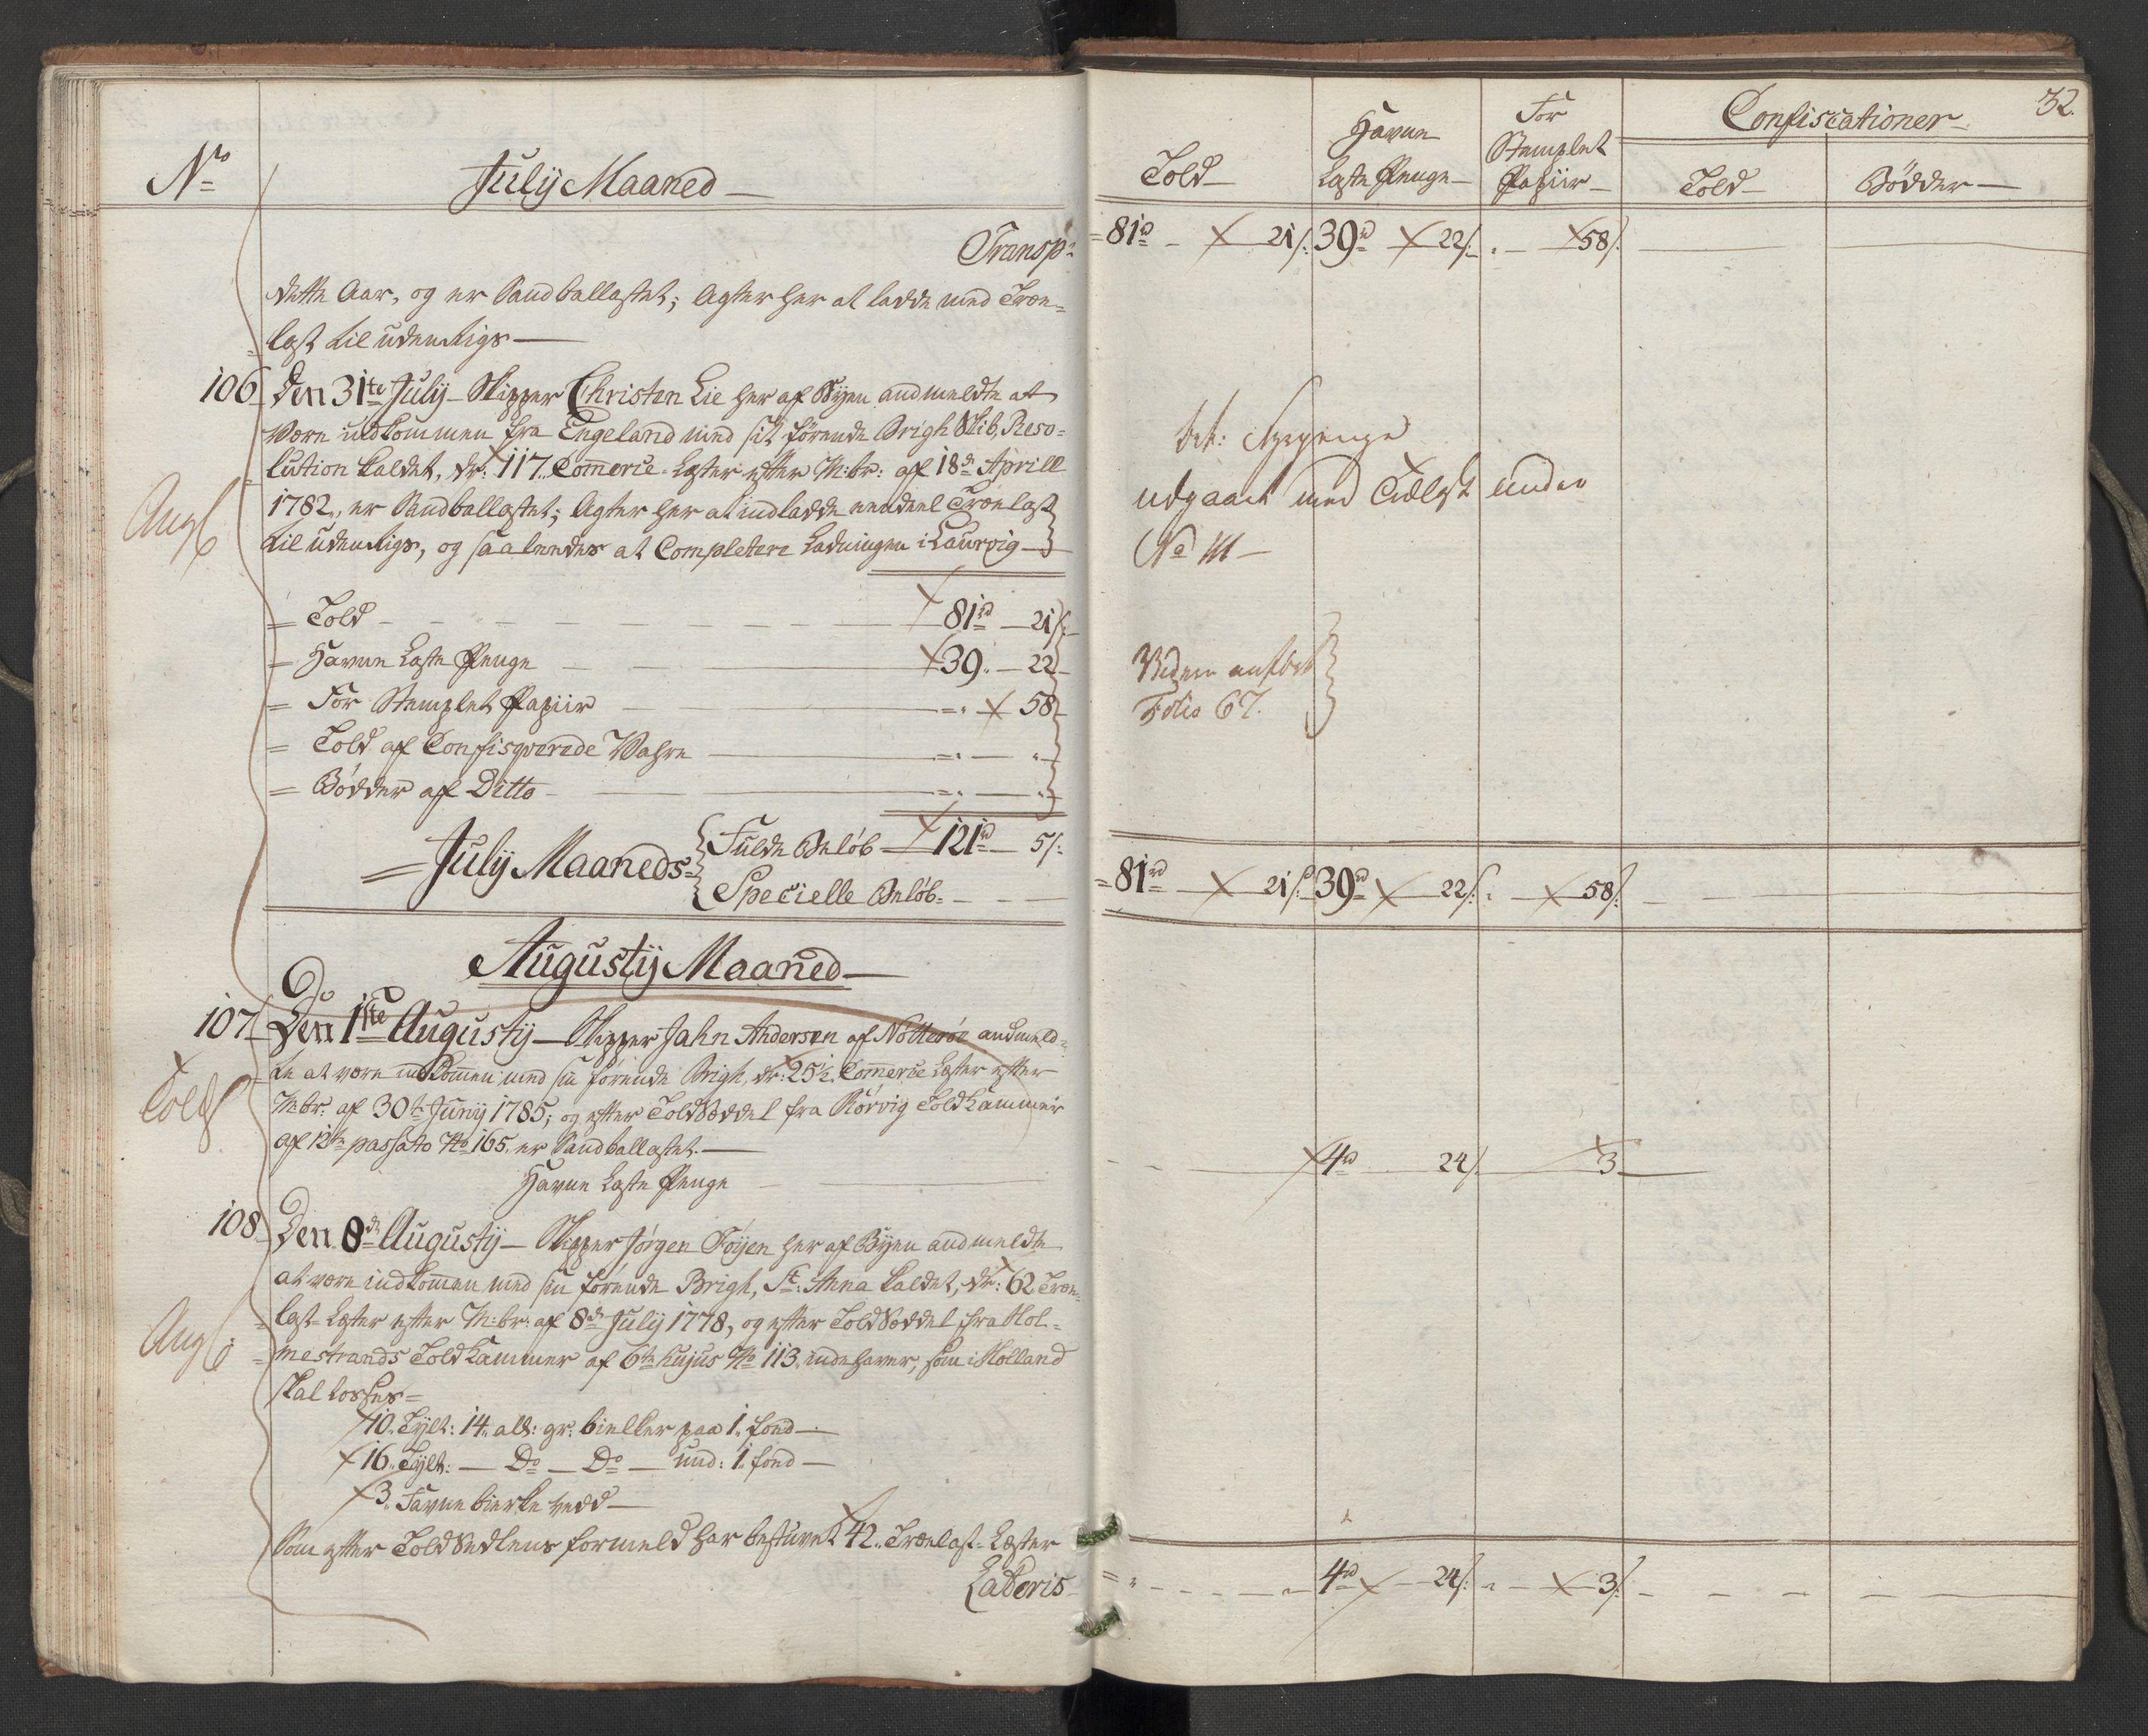 No
July Maaned
Transp:
dette Aar, og er Sandballastet; Agter her at ladde med Træ-
last til udenrigs
106 Den 31te July Skipper Christen Lie her af Byen andmeldte at
være indkommen fra Engeland med sit førende Brigh Skib, Reso-
lution kaldet, dr: 117 Com̄erce Læster efter M:br: af 18de Aprill
Ang
1782, er Sandballastet; Agter her at indladde eendeel Trælast
til udenrigs, og saaleedes at Completere Ladningen i Laurvig
= Told 81rd 21s
= Havne Laste Penge 39 22
= For Stemplet Papiir 58
= Told af Confisqverede Wahre
= Bødder af Ditto
= July Maaneds= Fulde Beløb 121rd 5s:
Specielle Beløb
Augustij Maaned
107 Den 1ste Augustij Skipper Jahn Andersen af Nötterøe andmeld-
te at være indkom̄en med sin førende Brigh, dr: 25½ Com̄erce Læster efter
Told
M:br: af 30te Junij 1785; og efter Toldseddel fra Rörvig Toldkammer
af 12te passato No 165. er Sandballastet.
Havne Laste Penge
108 Den 8de Augustij Skipper Jørgen Føijen her af Byen andmeldte
at være indkom̄en med sin førende Brigh, St: Anna kaldet, dr: 62 Træ-
last-Læster efter M:br: af 8de July 1778, og efter Toldseddel fra Hol-
Ang
mestrands Toldkammer af 6te hujus No 113. indehaver, som i Holland
skal losses=
10. Tylt: 14. al: gr: bielker paa 1. fond
16. Tylt: Do Do und: 1. fond
3. Favne birke vedd
Som efter Toldsedlens formeld har bestuvet 42. Trælast-Læster
Lateris
32.
Told
Havne
Laste Penge
For
Stemplet
Papiir
Confiscationer
Told
Bødder
81rd 21s: 39rd 22s: 58s:
udgaaet med Trælast under
No 111
Videre anført
Folio 67.
81rd 21s: 39rd 22s: 58s:
4rd 24s. 3
4rd 24s: 3s: